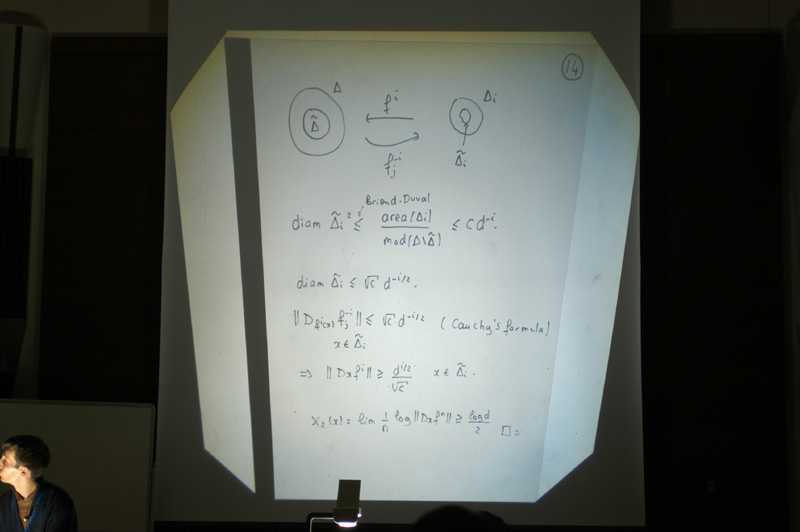 14
Δ
Δ̃
f^i
f_j^{-i}
Δ_i
Δ̃_i
Briend-Duval
diam Δ̃_i^2 ≤ area(Δ_i) / mod(Δ\Δ̃) ≤ C d^{-i}.
diam Δ̃_i ≤ √C d^{-i/2}.
||D_{f^i(x)} f_j^{-i}|| ≤ √C d^{-i/2} (Cauchy's formula)
x ∈ Δ̃_i
⇒ ||D_x f^i|| ≥ d^{i/2} / √C x ∈ Δ̃_i.
χ_2(x) = lim 1/n log ||D_x f^n|| ≥ log d / 2 □